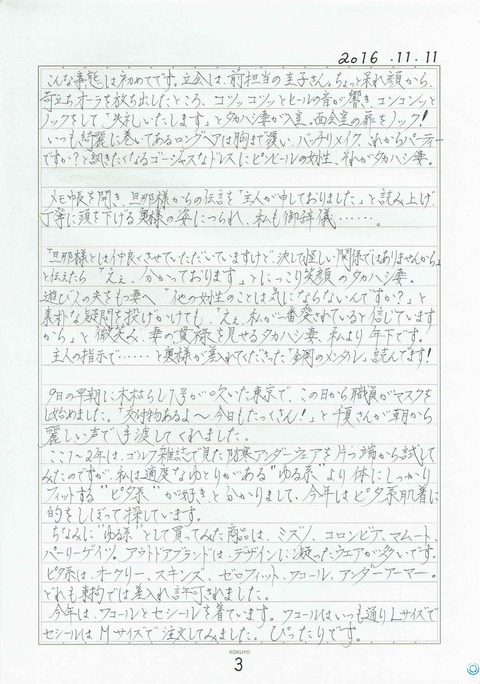 2016.11.11
こんな事態は初めてです。立会は、前担当の圭子さん。ちょっと呆れ顔から、
苛立ちオーラを放ち出したところ、コツッコツッとヒールの音が響き、コンコンッと
ノックをして、「失礼いたします」とタカハシ妻が入室。面会室の扉をノック!
いつも綺麗に巻いてあるロングヘアは胸まで覆い、バッチリメイク、これからパーティー
ですか?と訊きたくなるゴージャスなドレスにピンヒールの女性、それがタカハシ妻。
メモ帳を開き、旦那様からの伝言を「主人が申しておりました」と読み上げ、
丁寧に頭を下げる奥様の姿につられ、私も御辞儀……。
「旦那様とは仲良くさせていただいていますけど、決して怪しい関係ではありませんから」
と伝えたら「えぇ、分かっております」とにっこり笑顔のタカハシ妻。
遊び人の夫をもつ妻へ“他の女性のことは気にならないんですか?”と
素朴な疑問を投げかけても、「えぇ、私が一番愛されていると信じています
から」と微笑み、妻の貫禄を見せるタカハシ妻、私より年下です。
主人の指示で……と奥様が差入れてくださった『鋼のメンタル』読んでます!
9日の早朝に木枯らし1号が吹いた東京で、この日から職員がマスクを
し始めました。「交付物あるよ〜今日もたっくさん!」と千夏さんが朝から
麗しい声で手渡してくれました。
ここ1〜2年は、ゴルフ雑誌で見た防寒アンダーウェアを片っ端から試して
みたのですが、私は適度なゆとりがある“ゆる系”より体にしっかり
フィットする“ピタ系”が好きと分かりまして、今年はピタ系肌着に
的をしぼって探しています。
ちなみに“ゆる系”として買ってみた商品は、ミズノ、コロンビア、マムート、
パーリーゲイツ。アウトドアブランドは、デザインに凝ったウエアが多いです。
ピタ系は、オークリー、スキンズ、ゼロフィット、ワコール、アンダーアーマー。
どれも東拘では差入れ許可されました。
今年は、ワコールとセシールを着ています。ワコールはいつも通りLサイズで
セシールはMサイズで注文してみました。ぴったりです。
KOKUYO
3